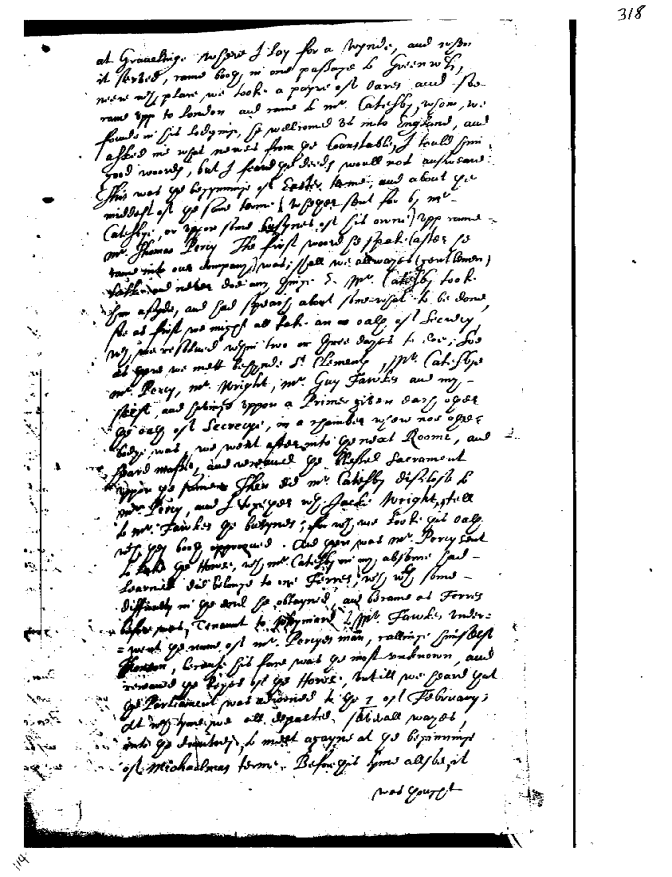 318
at Gravelinge where I lay for a wynde, and when
it served, came both in one passage to Greenwch,
neere wch place we tooke a payre of Oares and so
came upp to London and came to Mr. Catesby, whom we
found in his lodginge, he wellcomed us into England, and
asked me what newes from ye Constable, I tould him
good woords, but I feared ye deeds would not answeare.
This was ye beginninge of Easter terme, and about ye
middest of ye same terme (whether sent for by Mr
Catesby, or uppon some busynes of his owne) upp came
Mr Thomas Percy The first woord he speake (after he
came into our company) was, shall we allwayes (gentlemen)
talke and never doe any thinge? Mr. Catesby tooke
him asyde, and had speech about somewhat to be done,
so as first we might all take an oath of Secrecy
wch we resolved wthin two or three dayes to doe; soe
as there we mett behynde St Clements, Mr. Catesbye
Mr. Percy, Mr. Wright, Mr. Guy Fawkes and my
selfe, and havinge uppon a Primer given each other
the oath of Secrecye, in a chamber where noe other
body was, we went after into ye next Roome, and
heard masse, and receaved ye blessed Sacrament
uppon ye same. Then did Mr. Catesby disclose to
Mr. Percy, and I together wth Jacke Wright, tell
to Mr. Fawkes ye busynes, for wch we tooke this oath
wch they both approoved. And then was Mr. Percy sent
to take ye House, wch Mr. Catesby in my absence had
learned did belonge to one Ferres, wch wth some
difficulty in ye end he obtayned, and became as Ferres
before was, Tenant to Whynniard Mr. Fawkes under=
=went the name of Mr. Percyes man, callinge himselfe
Johnson, because his face was ye most unknown, and
receaved ye keyes of ye House, untill we heard that
ye Parliament was adjorned to ye 7 of February;
At wch tyme we all departed severall wayes,
into ye countrey, to meet agayne at ye beginninge
of Michaelmas terme. Before this tyme allso, it
was thought
114